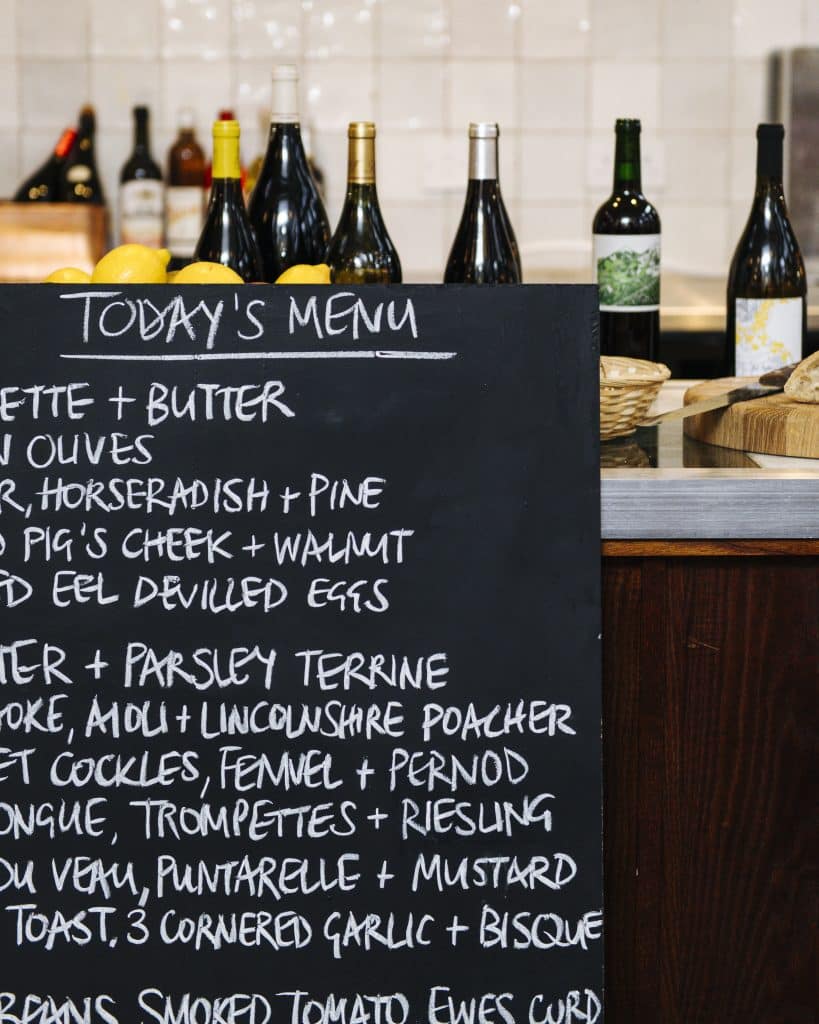 TODAY'S MENU
ETTE + BUTTER
N OLIVES
R, HORSERADISH + PINE
D PIG'S CHEEK + WALNUT
ED EEL DEVILLED EGGS
TER + PARSLEY TERRINE
OKE, AIOLI + LINCOLNSHIRE POACHER
ET COCKLES, FENNEL + PERNOD
ONGUE, TROMPETTES + RIESLING
OU VEAU, PUNTARELLE + MUSTARD
TOAST. 3 CORNERED GARLIC + BISQUE
BEANS SMOKED TOMATO EWES CURD